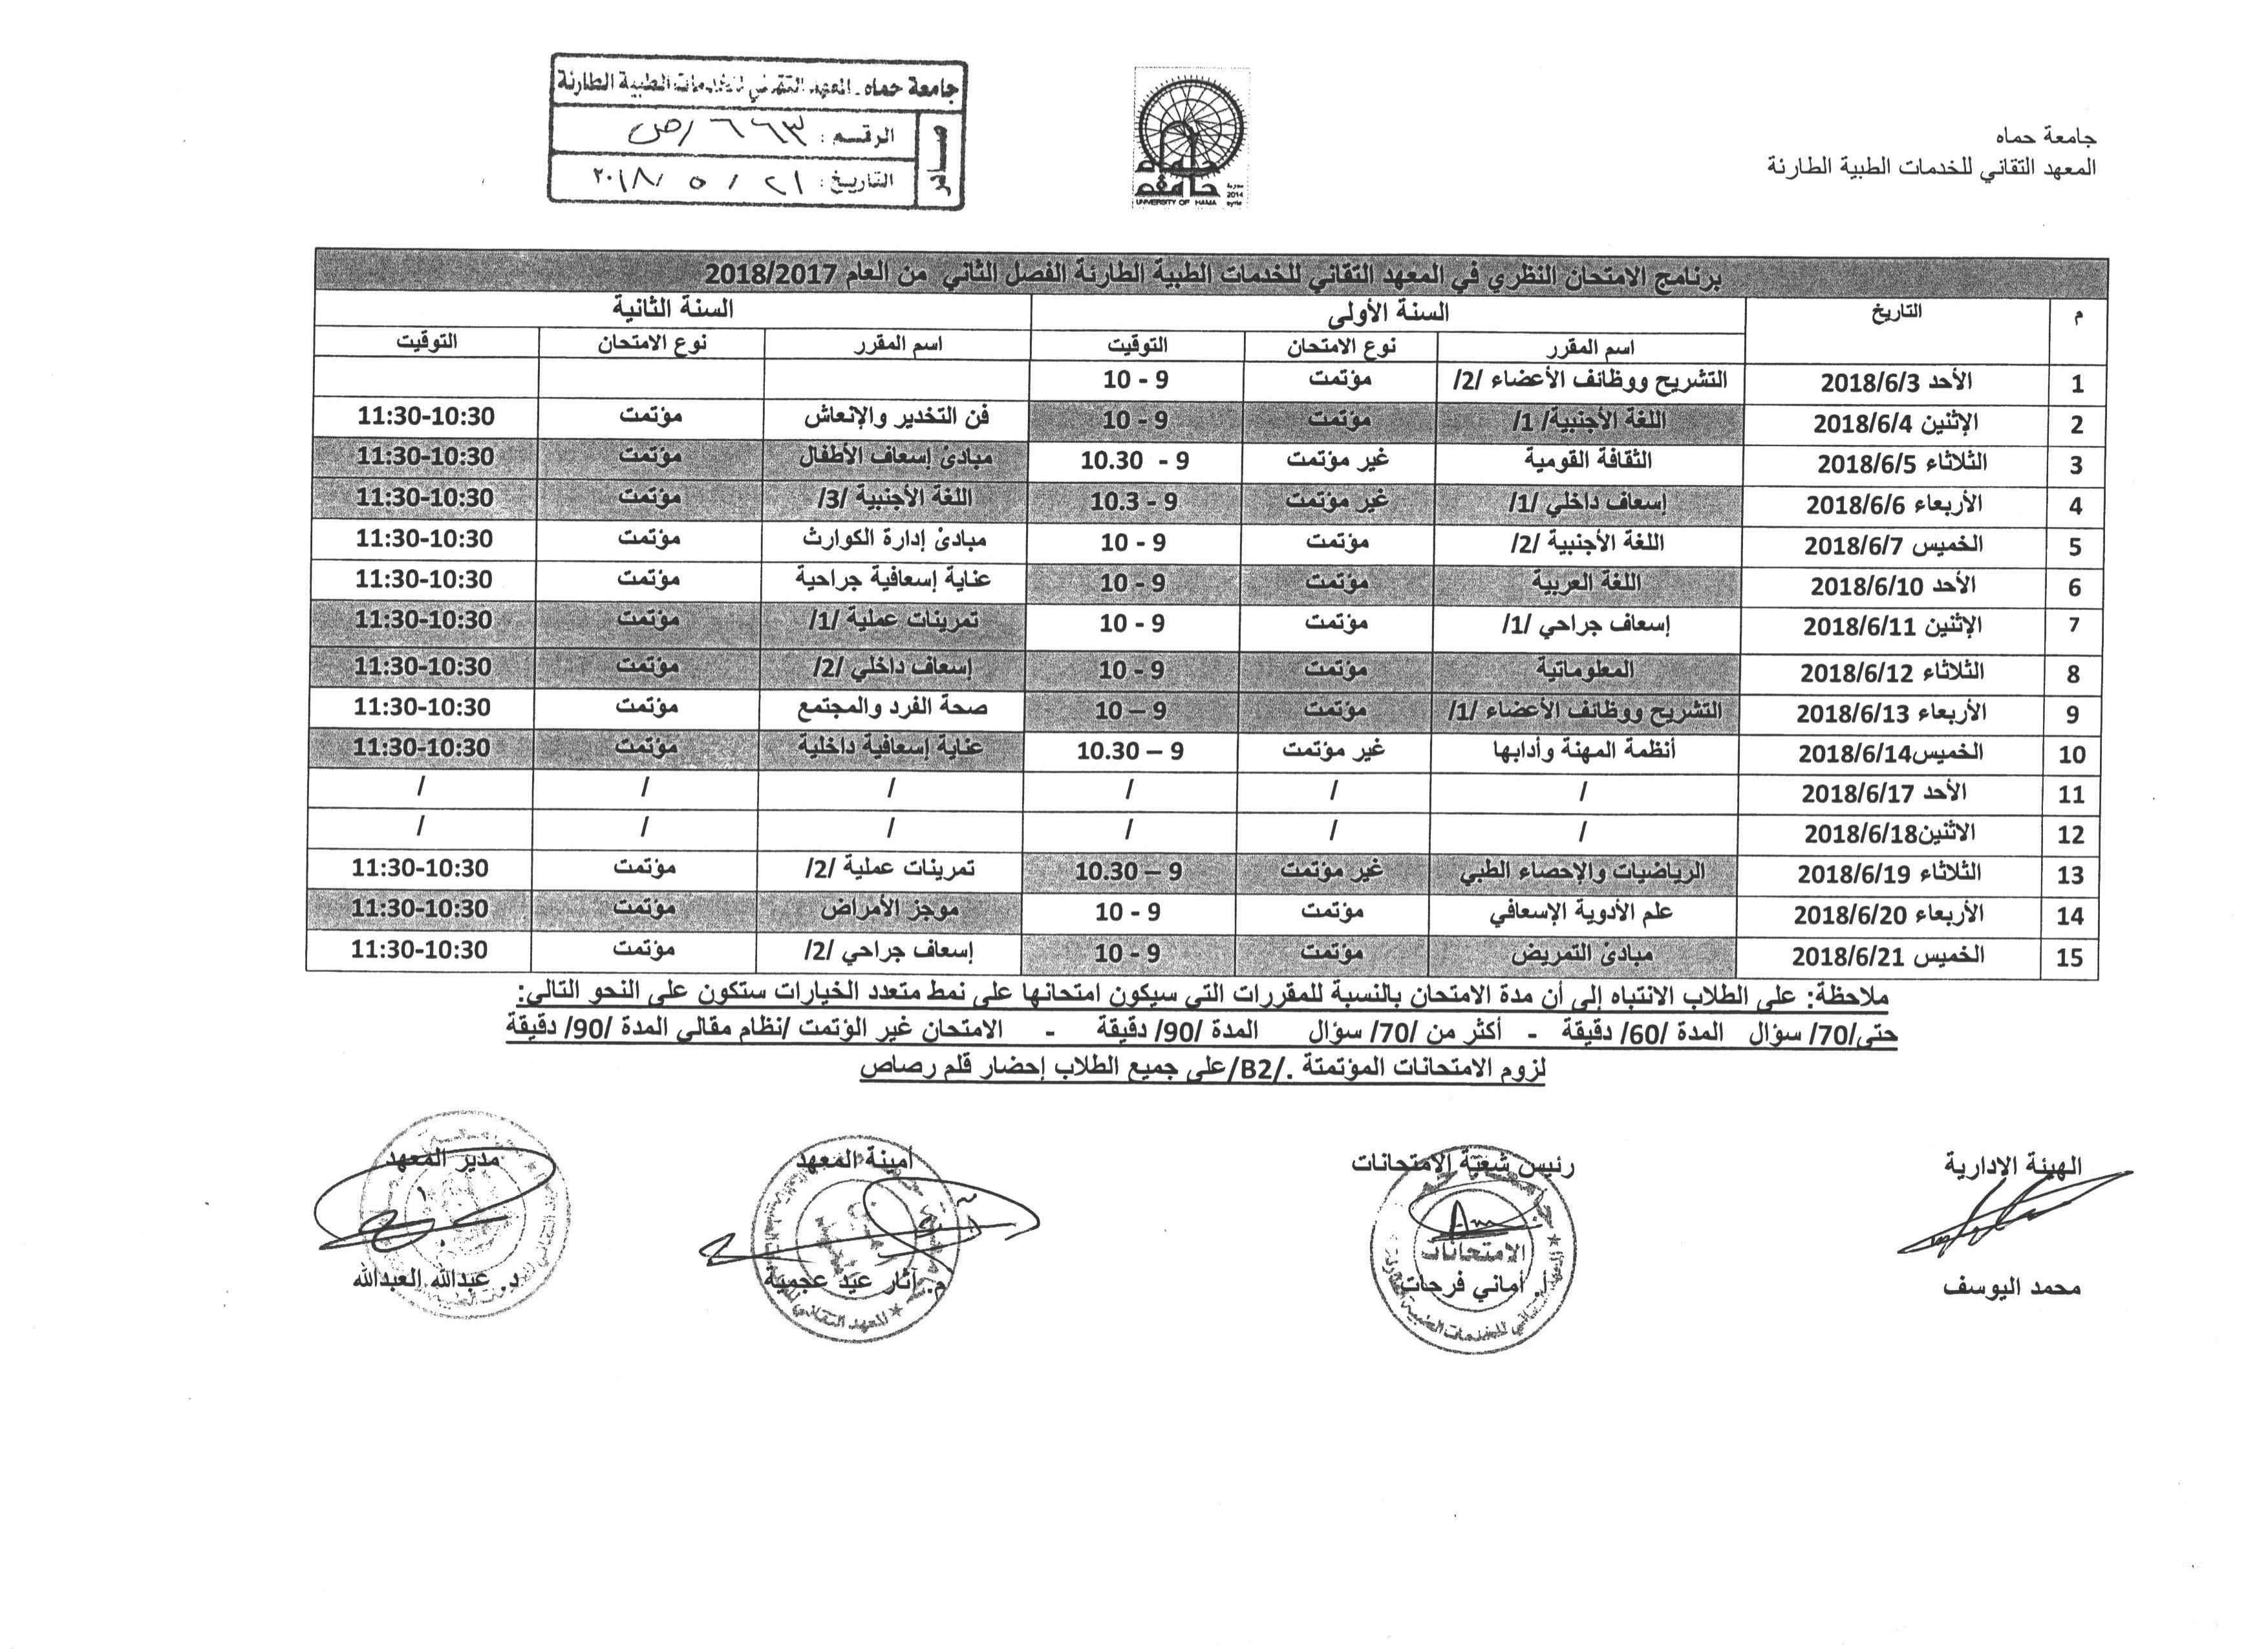 جامعة حماه
المعهد التقاني للخدمات الطبية الطارئة
جامعة حماه
UNIVERSITY OF HAMA
سورية
2014
syria
جامعة حماه - المعهد التقاني للخدمات الطبية الطارئة
صادر
الرقم : ٦٦٣ /ص
التاريخ : ٢١ / ٥ /٢٠١٨
برنامج الامتحان النظري في المعهد التقاني للخدمات الطبية الطارئة الفصل الثاني من العام 2018/2017
م التاريخ السنة الأولى السنة الثانية
اسم المقرر نوع الامتحان التوقيت اسم المقرر نوع الامتحان التوقيت
1 الأحد 2018/6/3 التشريح ووظائف الأعضاء /2/ مؤتمت 9 - 10
2 الإثنين 2018/6/4 اللغة الأجنبية/ 1/ مؤتمت 9 - 10 فن التخدير والإنعاش مؤتمت 11:30-10:30
3 الثلاثاء 2018/6/5 الثقافة القومية غير مؤتمت 9 - 10.30 مبادئ إسعاف الأطفال مؤتمت 11:30-10:30
4 الأربعاء 2018/6/6 إسعاف داخلي /1/ غير مؤتمت 9 - 10.3 اللغة الأجنبية /3/ مؤتمت 11:30-10:30
5 الخميس 2018/6/7 اللغة الأجنبية /2/ مؤتمت 9 - 10 مبادئ إدارة الكوارث مؤتمت 11:30-10:30
6 الأحد 2018/6/10 اللغة العربية مؤتمت 9 - 10 عناية إسعافية جراحية مؤتمت 11:30-10:30
7 الإثنين 2018/6/11 إسعاف جراحي /1/ مؤتمت 9 - 10 تمرينات عملية /1/ مؤتمت 11:30-10:30
8 الثلاثاء 2018/6/12 المعلوماتية مؤتمت 9 - 10 إسعاف داخلي /2/ مؤتمت 11:30-10:30
9 الأربعاء 2018/6/13 التشريح ووظائف الأعضاء /1/ مؤتمت 9 – 10 صحة الفرد والمجتمع مؤتمت 11:30-10:30
10 الخميس2018/6/14 أنظمة المهنة وأدابها غير مؤتمت 9 – 10.30 عناية إسعافية داخلية مؤتمت 11:30-10:30
11 الأحد 2018/6/17 / / / / / /
12 الاثنين2018/6/18 / / / / / /
13 الثلاثاء 2018/6/19 الرياضيات والإحصاء الطبي غير مؤتمت 9 – 10.30 تمرينات عملية /2/ مؤتمت 11:30-10:30
14 الأربعاء 2018/6/20 علم الأدوية الإسعافي مؤتمت 9 - 10 موجز الأمراض مؤتمت 11:30-10:30
15 الخميس 2018/6/21 مبادئ التمريض مؤتمت 9 - 10 إسعاف جراحي /2/ مؤتمت 11:30-10:30
ملاحظة: على الطلاب الانتباه إلى أن مدة الامتحان بالنسبة للمقررات التي سيكون امتحانها على نمط متعدد الخيارات ستكون على النحو التالي:
حتى/70/ سؤال المدة /60/ دقيقة - أكثر من /70/ سؤال المدة /90/ دقيقة - الامتحان غير الؤتمت /نظام مقالي المدة /90/ دقيقة
لزوم الامتحانات المؤتمتة ./B2/على جميع الطلاب إحضار قلم رصاص
الهيئة الإدارية رئيس شعبة الامتحانات أمينة المعهد مدير المعهد
الامتحانات
محمد اليوسف أ. أماني فرحات م. آثار عيد عجمية د. عبدالله العبدالله